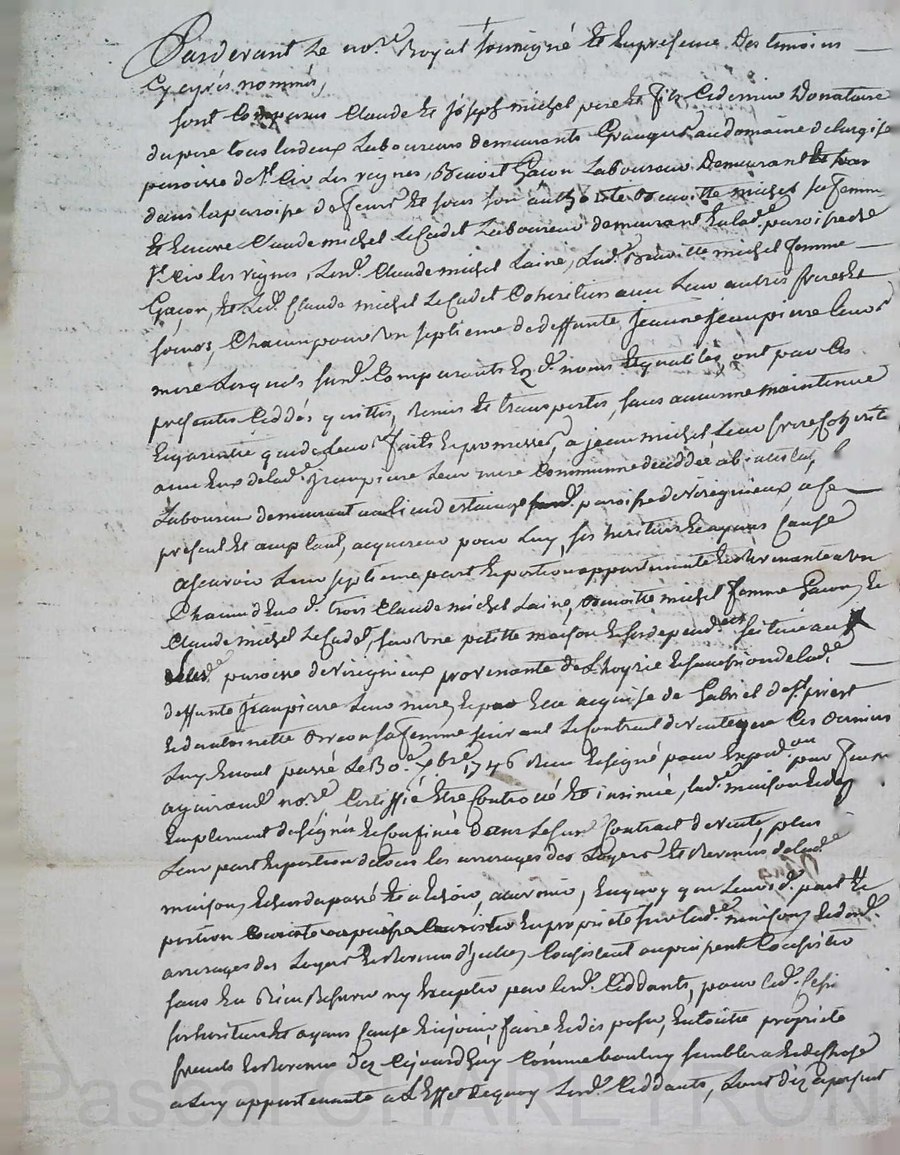 Pardevant Le nore Royal Soussigné Et En presence Des temoins
Cy aprés nommés,
sont Comparus Claude Et Joseph michel pere Et fils Ce dernier Donataire
du pere tous Les deux Laboureurs demeurants Grangers au domaine de
paroisse de St Cir Les vignes, Benoit Gacon Laboureur Demeurant
dans la paroisse de feurs Et sous son authorité Benoitte michel sa femme
Et Encore Claude michel Le Cadet Laboureur demeurant En lade paroisse de
St Cir les vignes, Lesds Claude michel Lainé, Lade Benoitte michel femme
Gacon, Et Led. Claude michel Le Cadet Coheritiers avec Leur autres freres Et
soeurs, Chacun pour Un septieme de deffunte Jeanne Jeanpierre Leur
mere Lesquels susds Comparants Ezds noms Et qualités, ont par Ces
presentes Ceddés quittés, Remis Et transportés, sans aucune maintenue
Engarentie que de Leurs faits Et promesses, a jean michel Leur frere, Coheritier
avec Eux de lade Jeanpierre Leur mere Commune decedée abintestat,
Laboureur demeurant au lieu paroisse de virigneux, a ce
present Et acceptant, acquereur pour Luy, ses heritiers Et ayants Cause
Ascavoir Leur septieme part Et portion appartenante Et Revenante a un
Chacun d'Eux ds trois Claude michel Lainé, Benoitte michel femme Gacon, Et
Claude michel Le Cadet, sur Une petitte maison Et ses dependces scituée au
paroisse de virigneux provenante de L'hoyrie Et succession de lade
deffunte Jeanpierre Leur mere, Et par Elle acquise de Gabriel de St priest
Et de antoinette sa femme suivant Le Contract de vente que Ces derniers
Luy En ont passé Le 30e xbre 1746 Recu Et signé pour Expedon par
nore Certiffié Etre Controllé Et insinué, lade maison
Emplement designée Et Confinée dans Le susd Contract de vente, plus
Leur part Et portion de tous les arrerages des Loyers Et Revenus de lade
maison, Echus du passé Et a Echoir, a avenir, En quoy que Leursds part Et
portion En proprieté sur lade maison, Et
arrerages des Loyers Et Revenus d'icelles Consistent ou puissent Consister
sans En Rien Reserver ny Excepter par Lesds Ceddants, pour led.
ses heritiers Et ayans Cause En jouir, faire Et disposer, En toutte proprieté
fruits Et Revenus dez aujourd'huy Comme bon luy semblera Et de Chose
a Luy appartenante a L'Effet dequoy Lesds Ceddants, sont dez a present
Pascal CHAREYRON